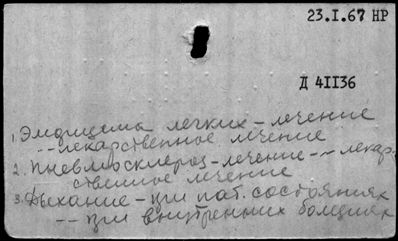 23.I.67 НР
Д 41136
1. Эмфизема легких - лечение
-- лекарственное лечение
2. Пневмосклероз - лечение -- лекар-
ственное лечение
3. Дыхание - при пат. состояниях
-- при внутренних болезнях